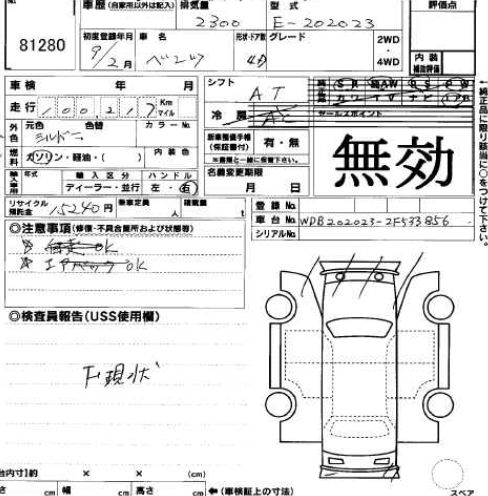 車歴 (自家用以外は記入) 排気量 2300 型式 E-202023 評価点
81280
初度登録年月 9/2月 車名 ベンツ 形状・ドア数 4D グレード 2WD・4WD
内装補助評価
車検 年 月 シフト AT
走行 100,217 Km マイル 冷房 AC
セールスポイント
外色 元色 シルバー 色替 カラーNo.
燃料 ガソリン・軽油・( ) 内装色
新車整備手帳(保証書付) 有・無
※書類と一緒に保管下さい。
無効
輸入車 年式 輸入区分 ディーラー・並行 ハンドル 左・右
名義変更期限 月 日
リサイクル預託金 15240円 乗車定員 人 積載量 t
登録No.
車台No. WDB202023-2F533856
シリアルNo.
◎注意事項(修復・不具合箇所および状態等)
OK
エアバック OK
◎検査員報告(USS使用欄)
下現状
荷台内寸)約 × × (cm)
長さ cm 幅 cm 高さ cm ←(車検証上の寸法)
スペア
←純正品に限り該当に○をつけて下さい。